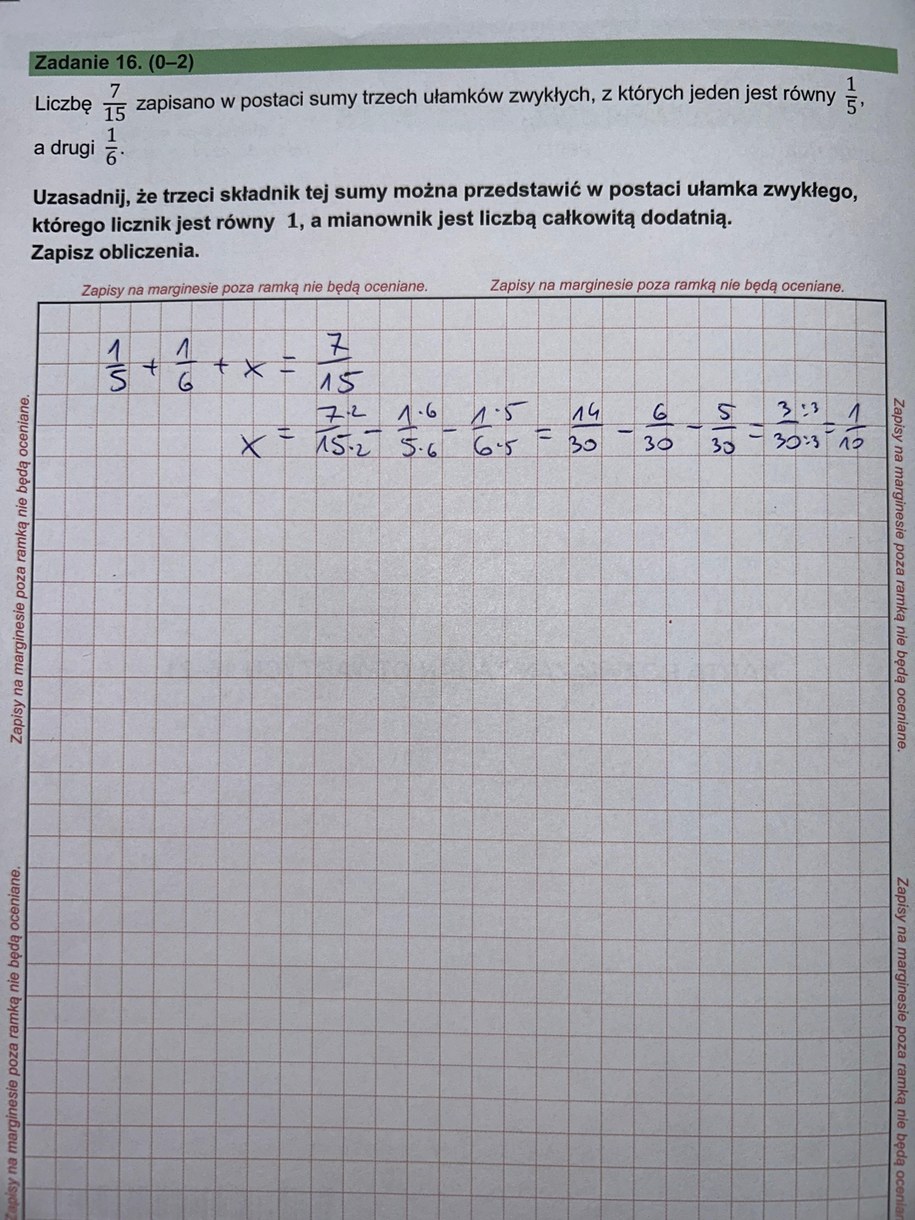 Zadanie 16. (0–2)
Liczbę 7/15 zapisano w postaci sumy trzech ułamków zwykłych, z których jeden jest równy 1/5,
a drugi 1/6.
Uzasadnij, że trzeci składnik tej sumy można przedstawić w postaci ułamka zwykłego,
którego licznik jest równy 1, a mianownik jest liczbą całkowitą dodatnią.
Zapisz obliczenia.
Zapisy na marginesie poza ramką nie będą oceniane. Zapisy na marginesie poza ramką nie będą oceniane.
1/5 + 1/6 + x = 7/15
x = 7·2/15·2 - 1·6/5·6 - 1·5/6·5 = 14/30 - 6/30 - 5/30 = 3:3/30:3 = 1/10
Zapisy na marginesie poza ramką nie będą oceniane.
Zapisy na marginesie poza ramką nie będą oceniane.
Zapisy na marginesie poza ramką nie będą oceniane.
Zapisy na marginesie poza ramką nie będą ocenian